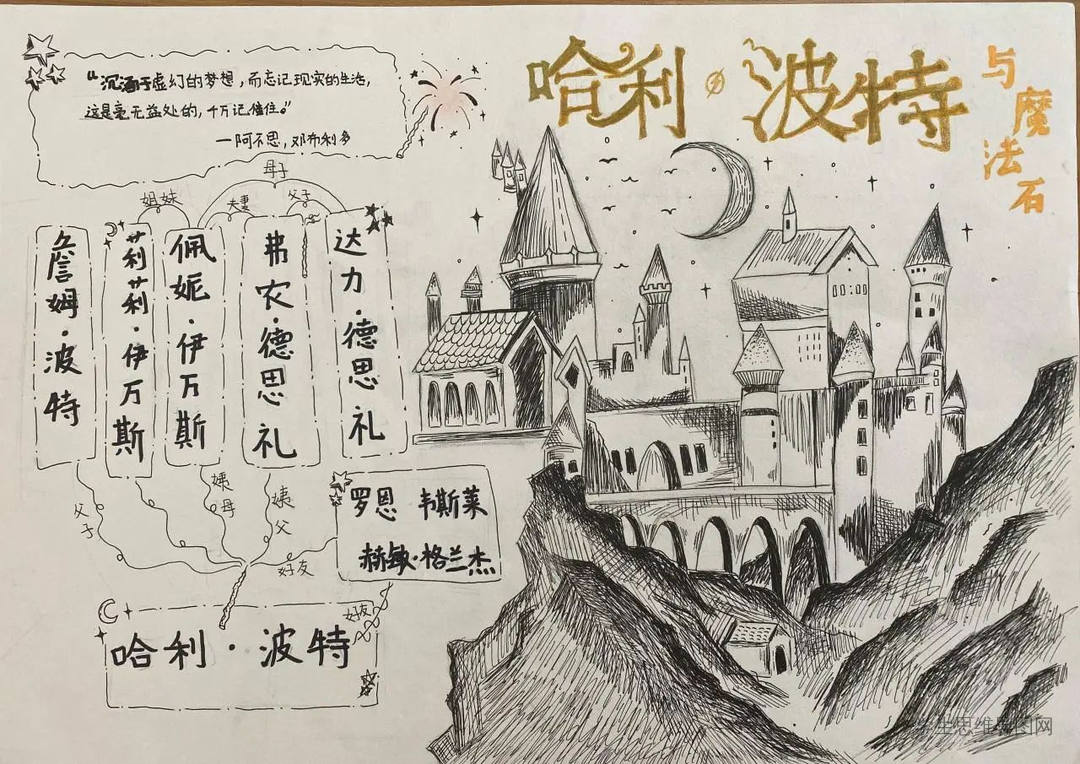 哈利·波特
与魔法石
“沉湎于虚幻的梦想，而忘记现实的生活，
这是毫无益处的，千万记住。”
——阿不思，邓布利多
母子
姐妹
夫妻
父子
詹姆·波特
莉莉·伊万斯
佩妮·伊万斯
弗农·德思礼
达力·德思礼
父子
姨母
姨父
好友
罗恩 韦斯莱
赫敏·格兰杰
好友
哈利·波特
学生思维导图网